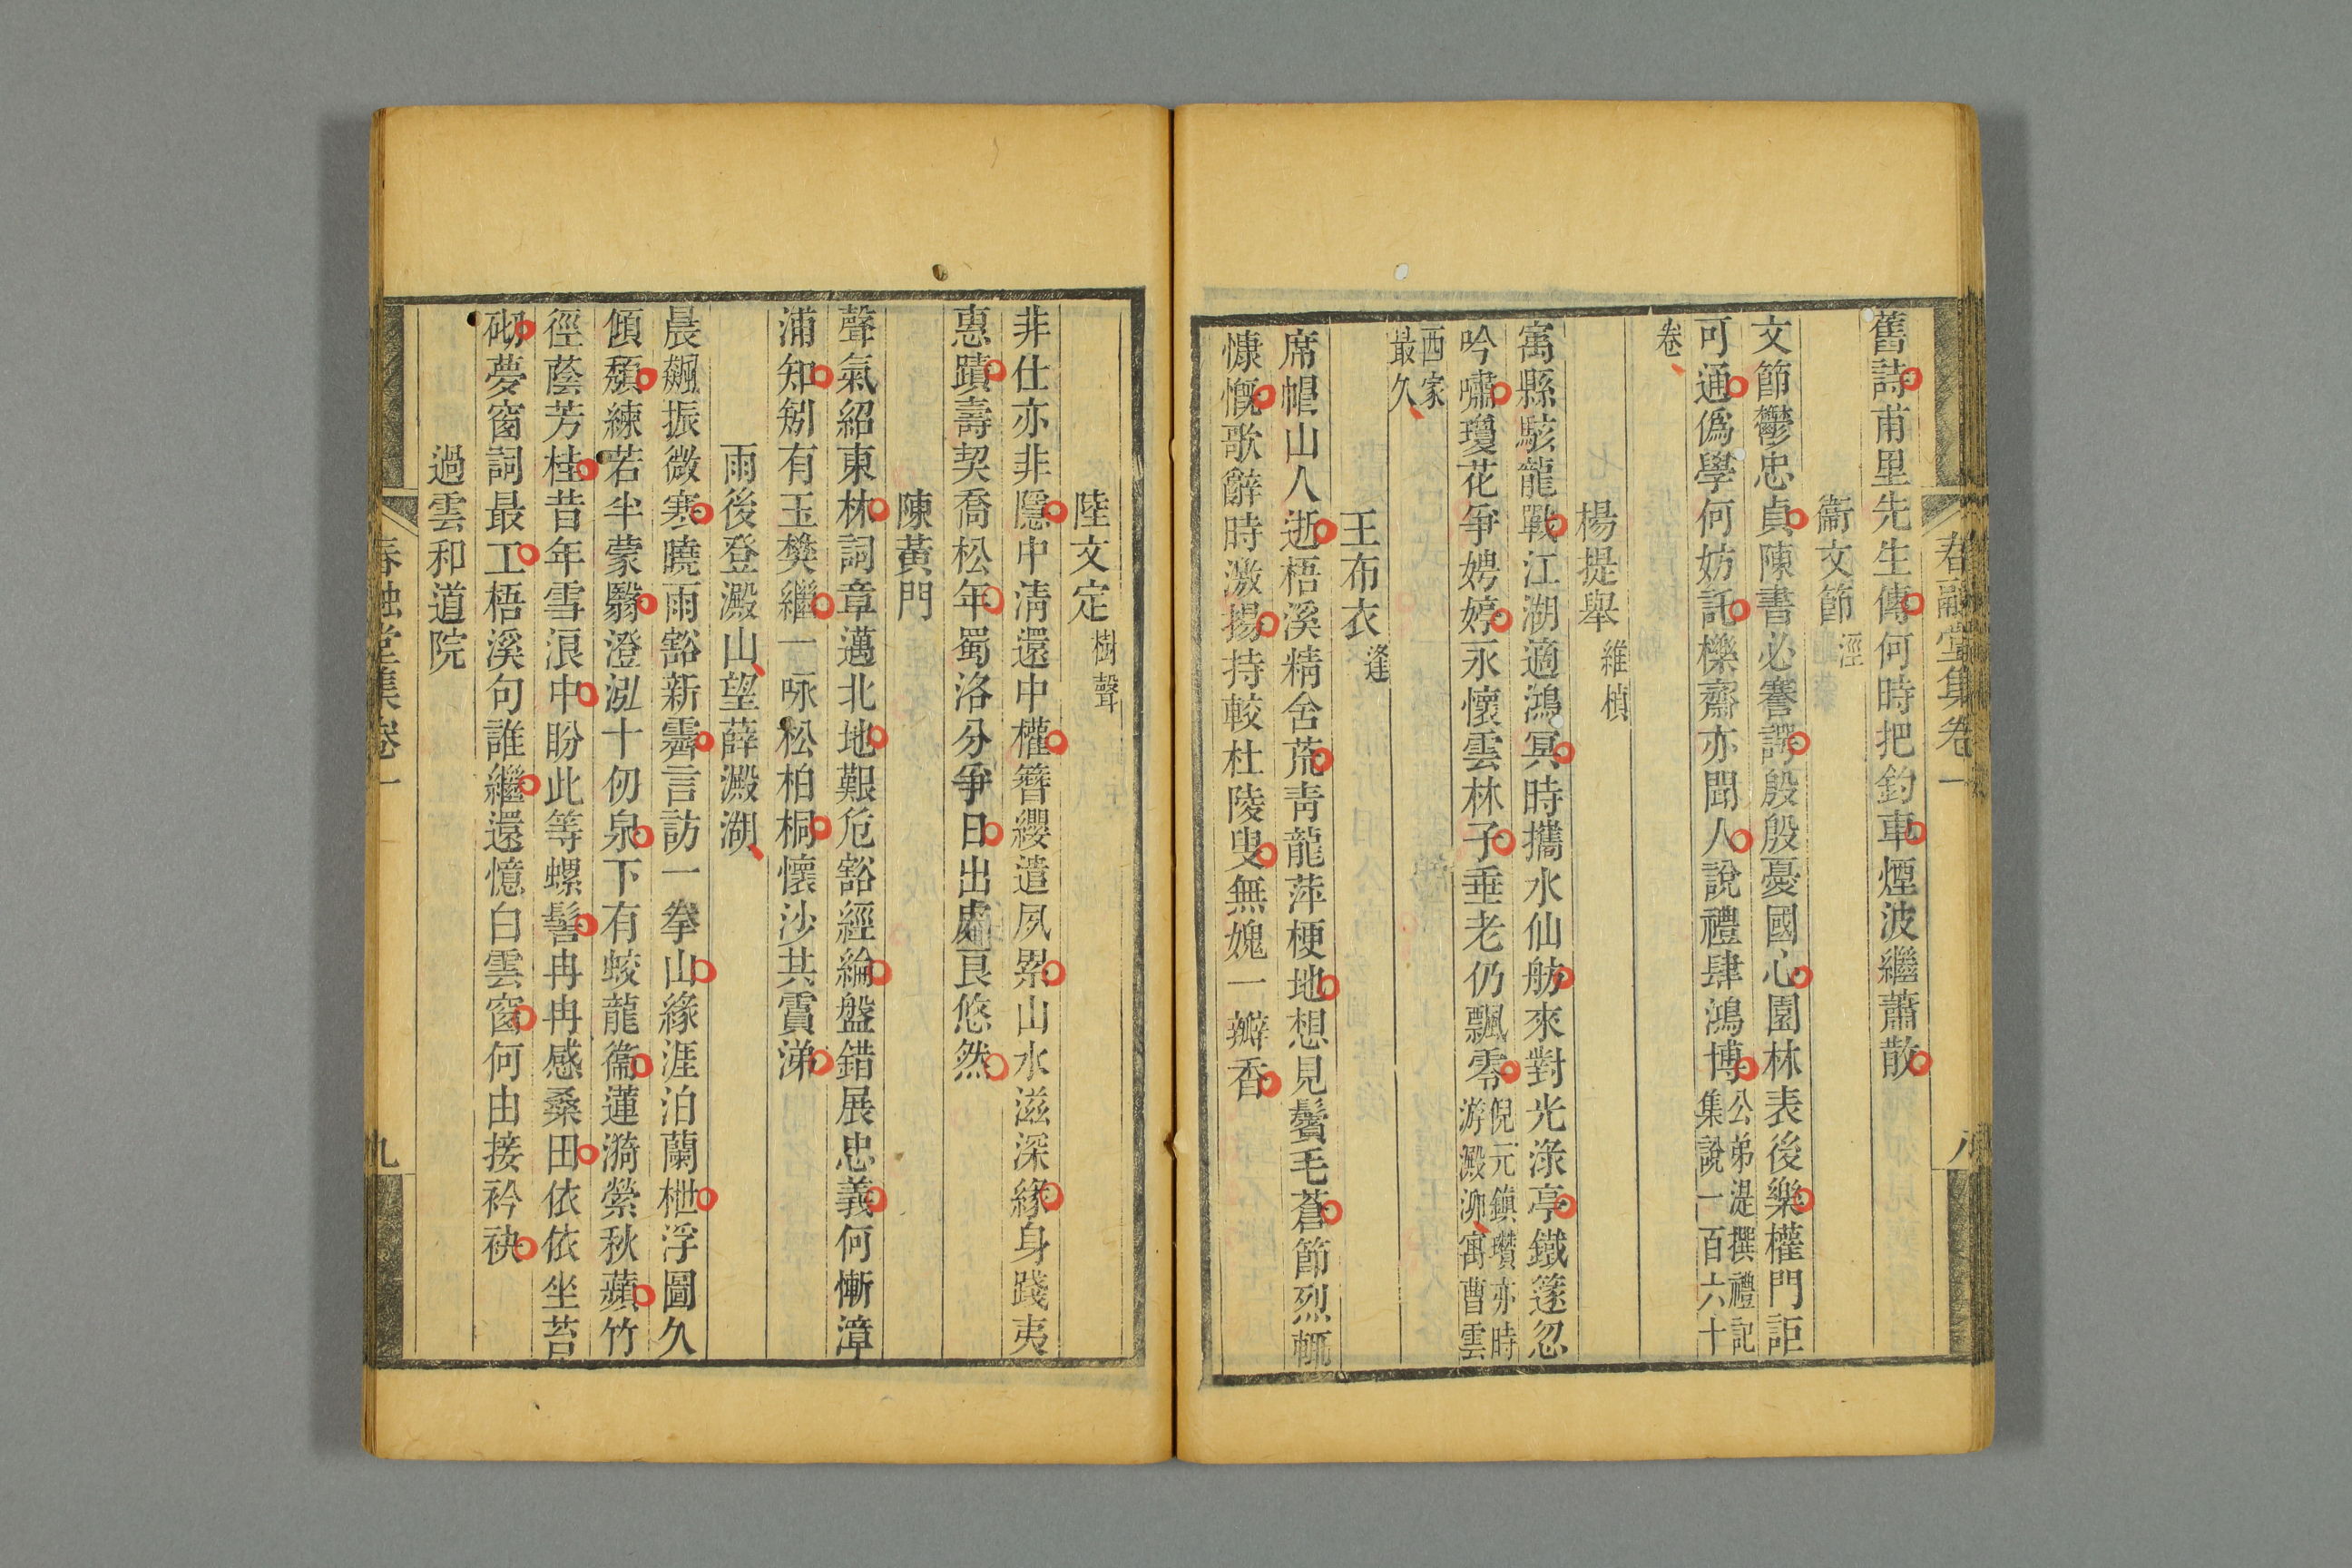 春融堂集卷一
八
舊詩甫里先生傳何時把釣車煙波繼蕭散
衞文節涇
文節鬱忠貞陳書必謇諤殷殷憂國心園林表後樂權門詎
可通僞學何妨託櫟齋亦聞人說禮肆鴻博公弟湜撰禮記集說一百六十
卷
楊提舉維楨
寓縣駭龍戰江湖適鴻冥時攜水仙舫來對光淥亭鐵篴忽
吟嘯瓊花爭娉婷永懷雲林子垂老仍飄零倪元鎮瓚亦時游澱泖寓曹雲
西家最久
王布衣逢
席帽山人逝梧溪精舍荒靑龍萍梗地想見鬢毛蒼節烈輒
慷慨歌辭時激揚持較杜陵叟無媿一瓣香
陸文定樹聲
非仕亦非隱中淸還中權簪纓遣夙累山水滋深緣身踐夷
惠蹟壽契喬松年蜀洛分爭日出處艮悠然
陳黃門
聲氣紹東林詞章邁北地艱危豁經綸盤錯展忠義何慚漳
浦知剏有玉樊繼一咏松柏桐懷沙共賈涕
雨後登澱山望薛澱湖
晨飈振微寒曉雨豁新霽言訪一拳山緣涯泊蘭枻浮圖久
傾頹練若半蒙翳澄泓十仞泉下有蛟龍衞蓮漪縈秋蘋竹
徑蔭芳桂昔年雪浪中盼此等螺髻冉冉感桑田依依坐苔
砌夢窗詞最工梧溪句誰繼還憶白雲窗何由接衿袂
過雲和道院
春融堂集卷一
九